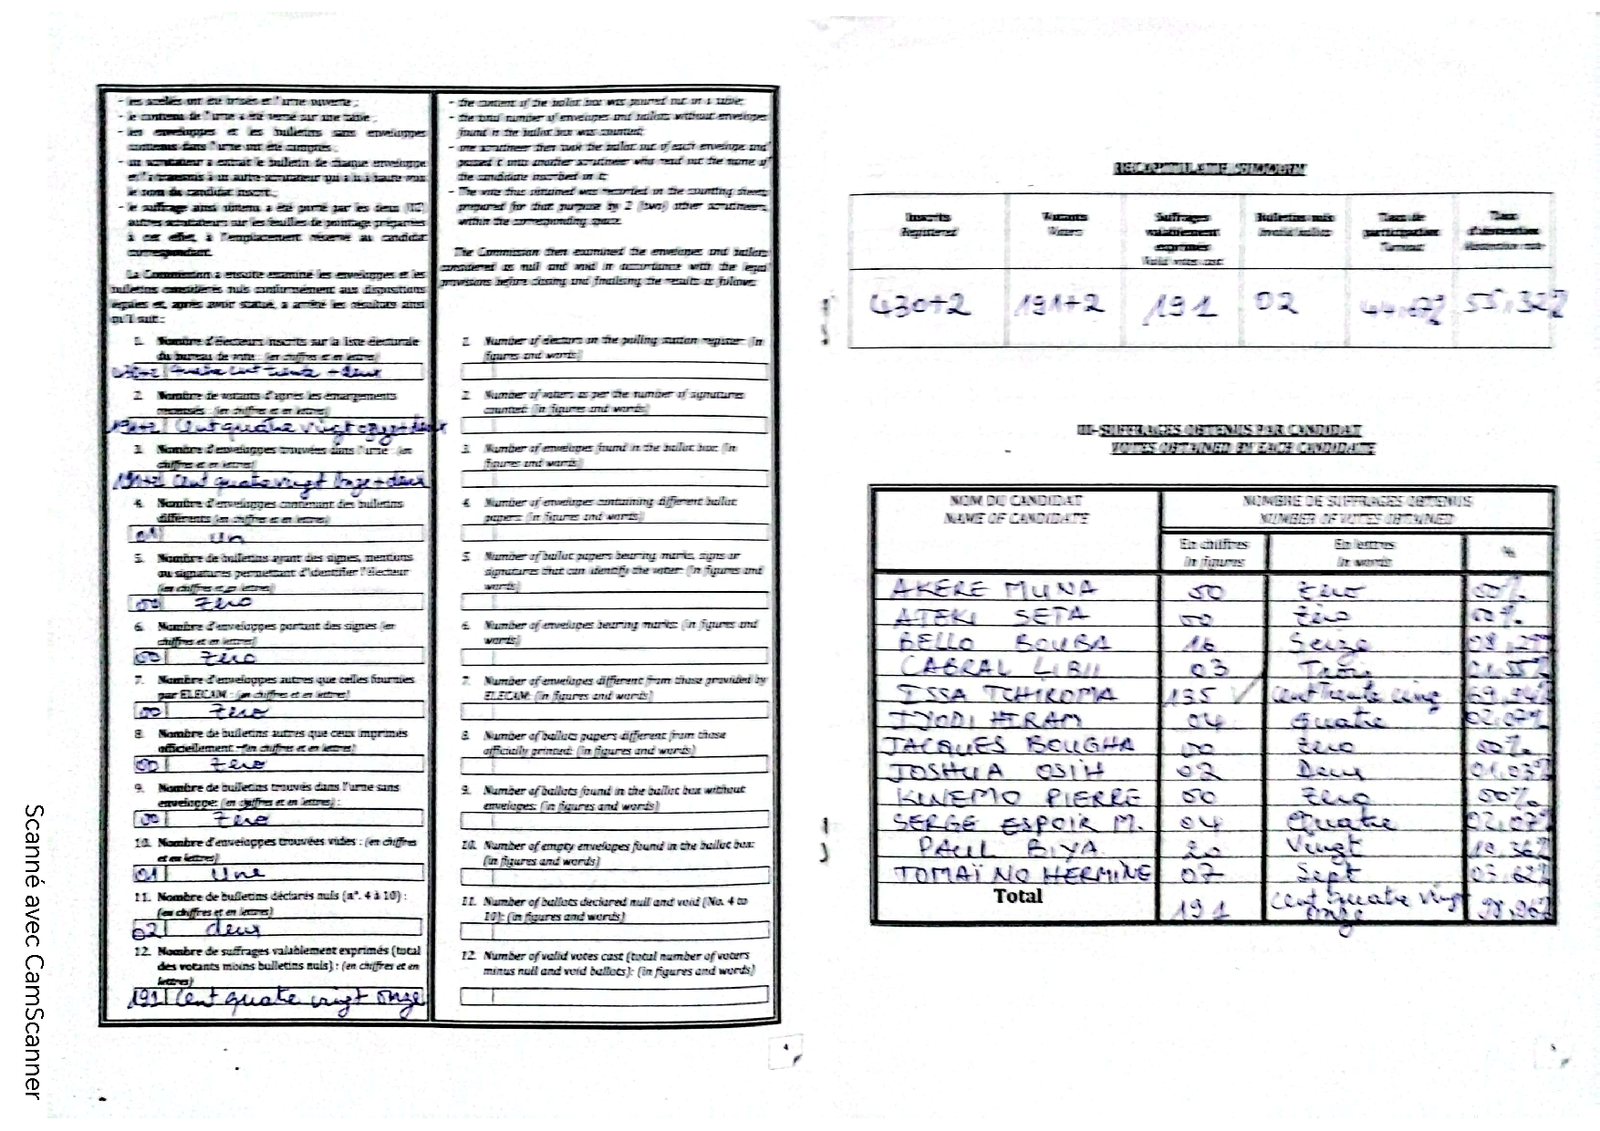 - les scellés ont été brisés et l'urne ouverte ;
- le contenu de l'urne a été versé sur une table ;
- les enveloppes et les bulletins sans enveloppes
contenus dans l'urne ont été comptés ;
- un scrutateur a extrait le bulletin de chaque enveloppe
et l'a transmis à un autre scrutateur qui a lu à haute voix
le nom du candidat inscrit ;
- le suffrage ainsi obtenu a été porté par les deux (02)
autres scrutateurs sur les feuilles de pointage préparées
à cet effet, à l'emplacement réservé au candidat
correspondant.
La Commission a ensuite examiné les enveloppes et les
bulletins considérés nuls conformément aux dispositions
légales et, après avoir statué, a arrêté les résultats ainsi
qu'il suit :
1. Nombre d'électeurs inscrits sur la liste électorale
du bureau de vote : (en chiffres et en lettres)
430+2 quatre cent trente + deux
2. Nombre de votants d'après les émargements
recensés : (en chiffres et en lettres)
191+2 Cent quatre vingt onze + deux
3. Nombre d'enveloppes trouvées dans l'urne : (en
chiffres et en lettres)
191+2 Cent quatre vingt onze + deux
4. Nombre d'enveloppes contenant des bulletins
différents (en chiffres et en lettres)
01 un
5. Nombre de bulletins ayant des signes, mentions
ou signatures permettant d'identifier l'électeur
(en chiffres et en lettres)
00 Zéro
6. Nombre d'enveloppes portant des signes (en
chiffres et en lettres)
00 Zéro
7. Nombre d'enveloppes autres que celles fournies
par ELECAM : (en chiffres et en lettres)
00 Zéro
8. Nombre de bulletins autres que ceux imprimés
officiellement : (en chiffres et en lettres)
00 Zéro
9. Nombre de bulletins trouvés dans l'urne sans
enveloppe: (en chiffres et en lettres) :
00 Zéro
10. Nombre d'enveloppes trouvées vides : (en chiffres
et en lettres)
01 Une
11. Nombre de bulletins déclarés nuls (n°. 4 à 10) :
(en chiffres et en lettres)
02 deux
12. Nombre de suffrages valablement exprimés (total
des votants moins bulletins nuls) : (en chiffres et en
lettres)
191 Cent quatre vingt onze
- the content of the ballot box was poured out on a table;
- the total number of envelopes and ballots without envelopes
found in the ballot box was counted;
- one scrutineer then took the ballot out of each envelope and
passed it onto another scrutineer who read out the name of
the candidate inscribed on it;
- The vote thus obtained was recorded in the counting sheets
prepared for that purpose by 2 (two) other scrutineers,
within the corresponding space.
The Commission then examined the envelopes and ballots
considered as null and void in accordance with the legal
provisions before closing and finalising the results as follows:
1. Number of electors on the polling station register: (in
figures and words)
2. Number of voters as per the number of signatures
counted: (in figures and words)
3. Number of envelopes found in the ballot box: (in
figures and words)
4. Number of envelopes containing different ballot
papers: (in figures and words)
5. Number of ballot papers bearing marks, signs or
signatures that can identify the voter: (in figures and
words)
6. Number of envelopes bearing marks: (in figures and
words)
7. Number of envelopes different from those provided by
ELECAM: (in figures and words)
8. Number of ballots papers different from those
officially printed: (in figures and words)
9. Number of ballots found in the ballot box without
envelopes: (in figures and words)
10. Number of empty envelopes found in the ballot box:
(in figures and words)
11. Number of ballots declared null and void (No. 4 to
10): (in figures and words)
12. Number of valid votes cast (total number of voters
minus null and void ballots): (in figures and words)
4
RECAPITULATIF SUMMARY
Inscrits Registered
Votants Voters
Suffrages valablement exprimés Valid votes cast
Bulletins nuls Invalid ballots
Taux de participation Turnout
Taux d'abstention Abstention rate
430+2 191+2 191 02 44,67% 55,32%
III- SUFFRAGES OBTENUS PAR CANDIDAT
VOTES OBTAINED BY EACH CANDIDATE
NOM DU CANDIDAT NOMBRE DE SUFFRAGES OBTENUS
NAME OF CANDIDATE NUMBER OF VOTES OBTAINED
En chiffres En lettres %
In figures In words
AKERE MUNA 00 Zéro 00%
ATEKI SETA 00 Zéro 00%
BELLO BOUBA 16 Seize 08,29%
CABRAL LIBII 03 Trois 01,55%
ISSA TCHIROMA 135 Cent Trente cinq 69,94%
IYODI HIRAM 04 Quatre 02,07%
JACQUES BOUGHA 00 Zéro 00%
JOSHUA OSIH 02 Deux 01,03%
KINEMO PIERRE 00 Zéro 00%
SERGE ESPOIR M. 04 Quatre 02,07%
PAUL BIYA 20 Vingt 10,36%
TOMAÏNO HERMINE 07 Sept 03,62%
Total 191 Cent quatre vingt onze 98,96%
Scanné avec CamScanner